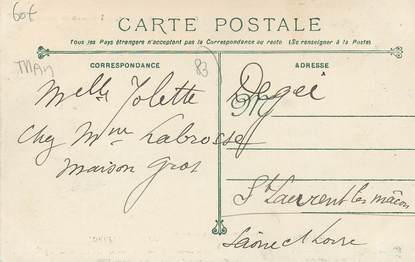 60f
CARTE POSTALE
Tous les Pays étrangers n'acceptent pas la Correspondance au recto (Se renseigner à la Poste)
CORRESPONDANCE
ADRESSE
83
Melle Jolette
Chez Mme Labrosse
maison Gros
St Laurent les mâcon
Saône et Loire